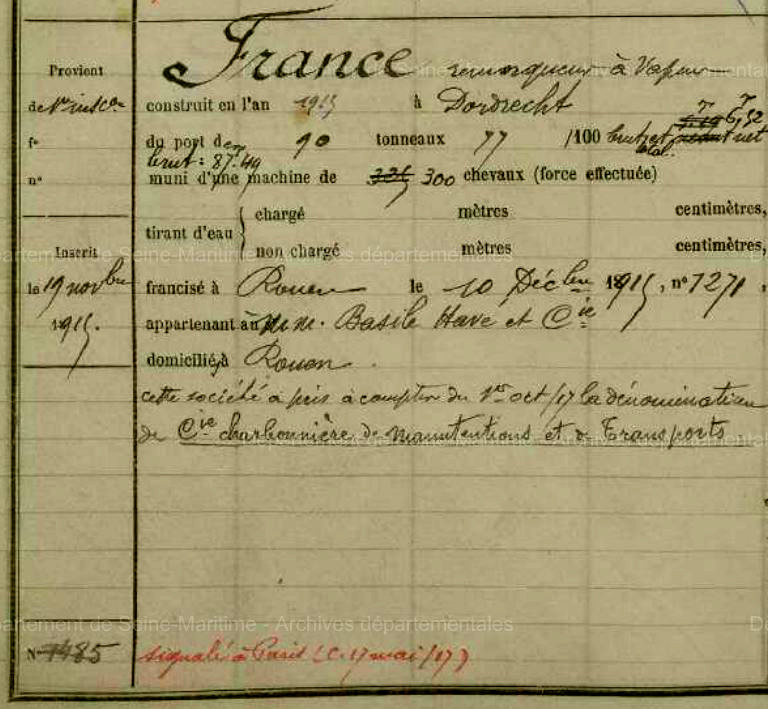 France remorqueur à Vapeur
Provient
de Nlle insc.on construit en l'an 1915 à Dordrecht
f° du port de 90 tonneaux 77 /100 brut et net
brut : 87.49 total.
n° muni d'une machine de 335 300 chevaux (force effectuée)
tirant d'eau { chargé mètres centimètres,
non chargé mètres centimètres,
Inscrit
le 19 novbre francisé à Rouen le 10 Décbre 1915, n° 1271,
1915. appartenant à mm. Basile Havé et Cie
domicilié à Rouen.
cette société a pris à compter du 1er oct/17 la dénomination
de Cie charbonnière de Manutentions et de Transports
N° 1485 signalé à Paris (C. 17 mai/17)
Département de Seine-Maritime - Archives départementales